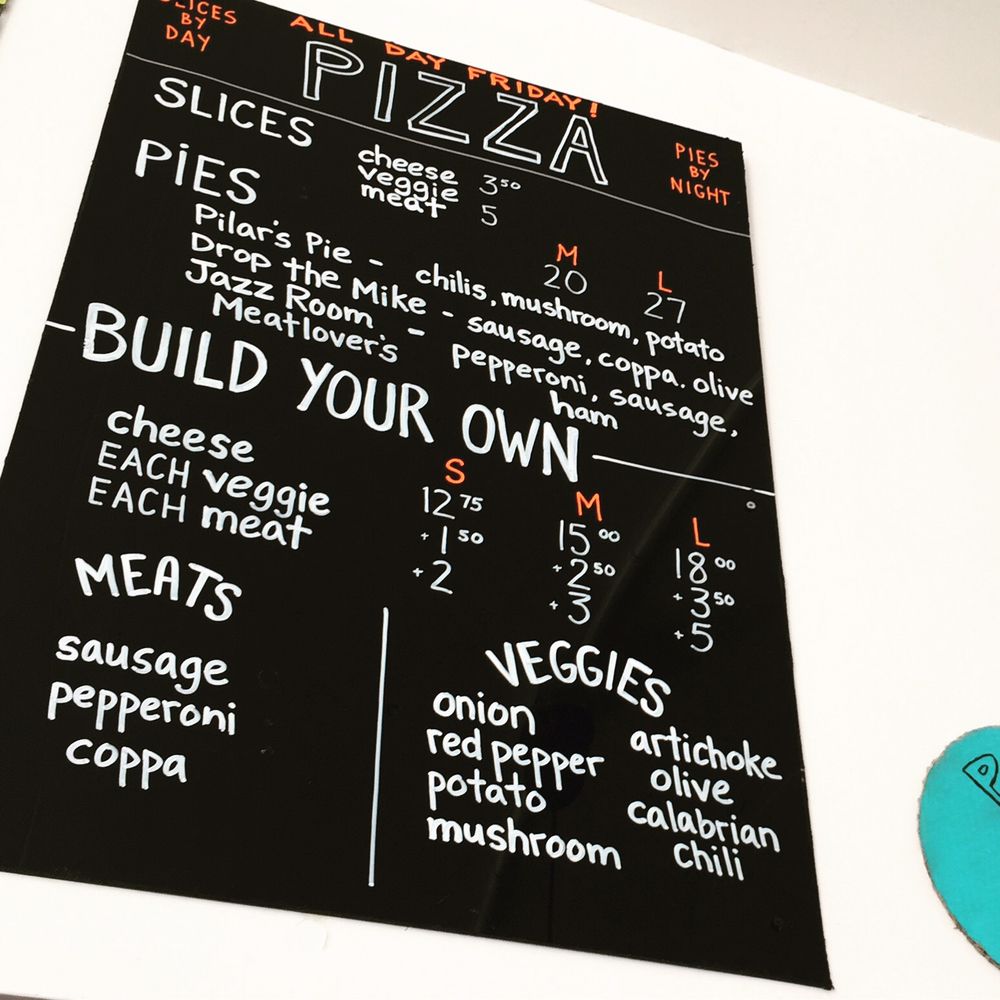 SLICES
BY
DAY
ALL DAY FRIDAY!
PIZZA
PIES
BY
NIGHT
SLICES
cheese
veggie 3⁵⁰
meat 5
PIES
M L
20 27
Pilar's Pie - chilis, mushroom, potato
Drop the Mike - sausage, coppa. olive
Jazz Room - pepperoni, sausage,
Meatlover's ham
BUILD YOUR OWN
S M L
cheese 12⁷⁵ 15⁰⁰ 18⁰⁰
EACH veggie +1⁵⁰ +2⁵⁰ +3⁵⁰
EACH meat +2 +3 +5
MEATS
sausage
pepperoni
coppa
VEGGIES
onion
red pepper
potato
mushroom
artichoke
olive
calabrian
chili